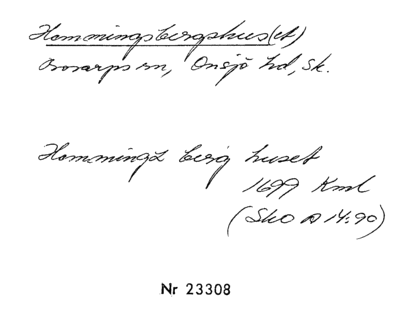 Hommingsbergshus(et)
Bosarps sn, Onsjö hd, Sk.
Hommingz berig huset
1699 Kml
(Sko a 14:90)
Nr 23308